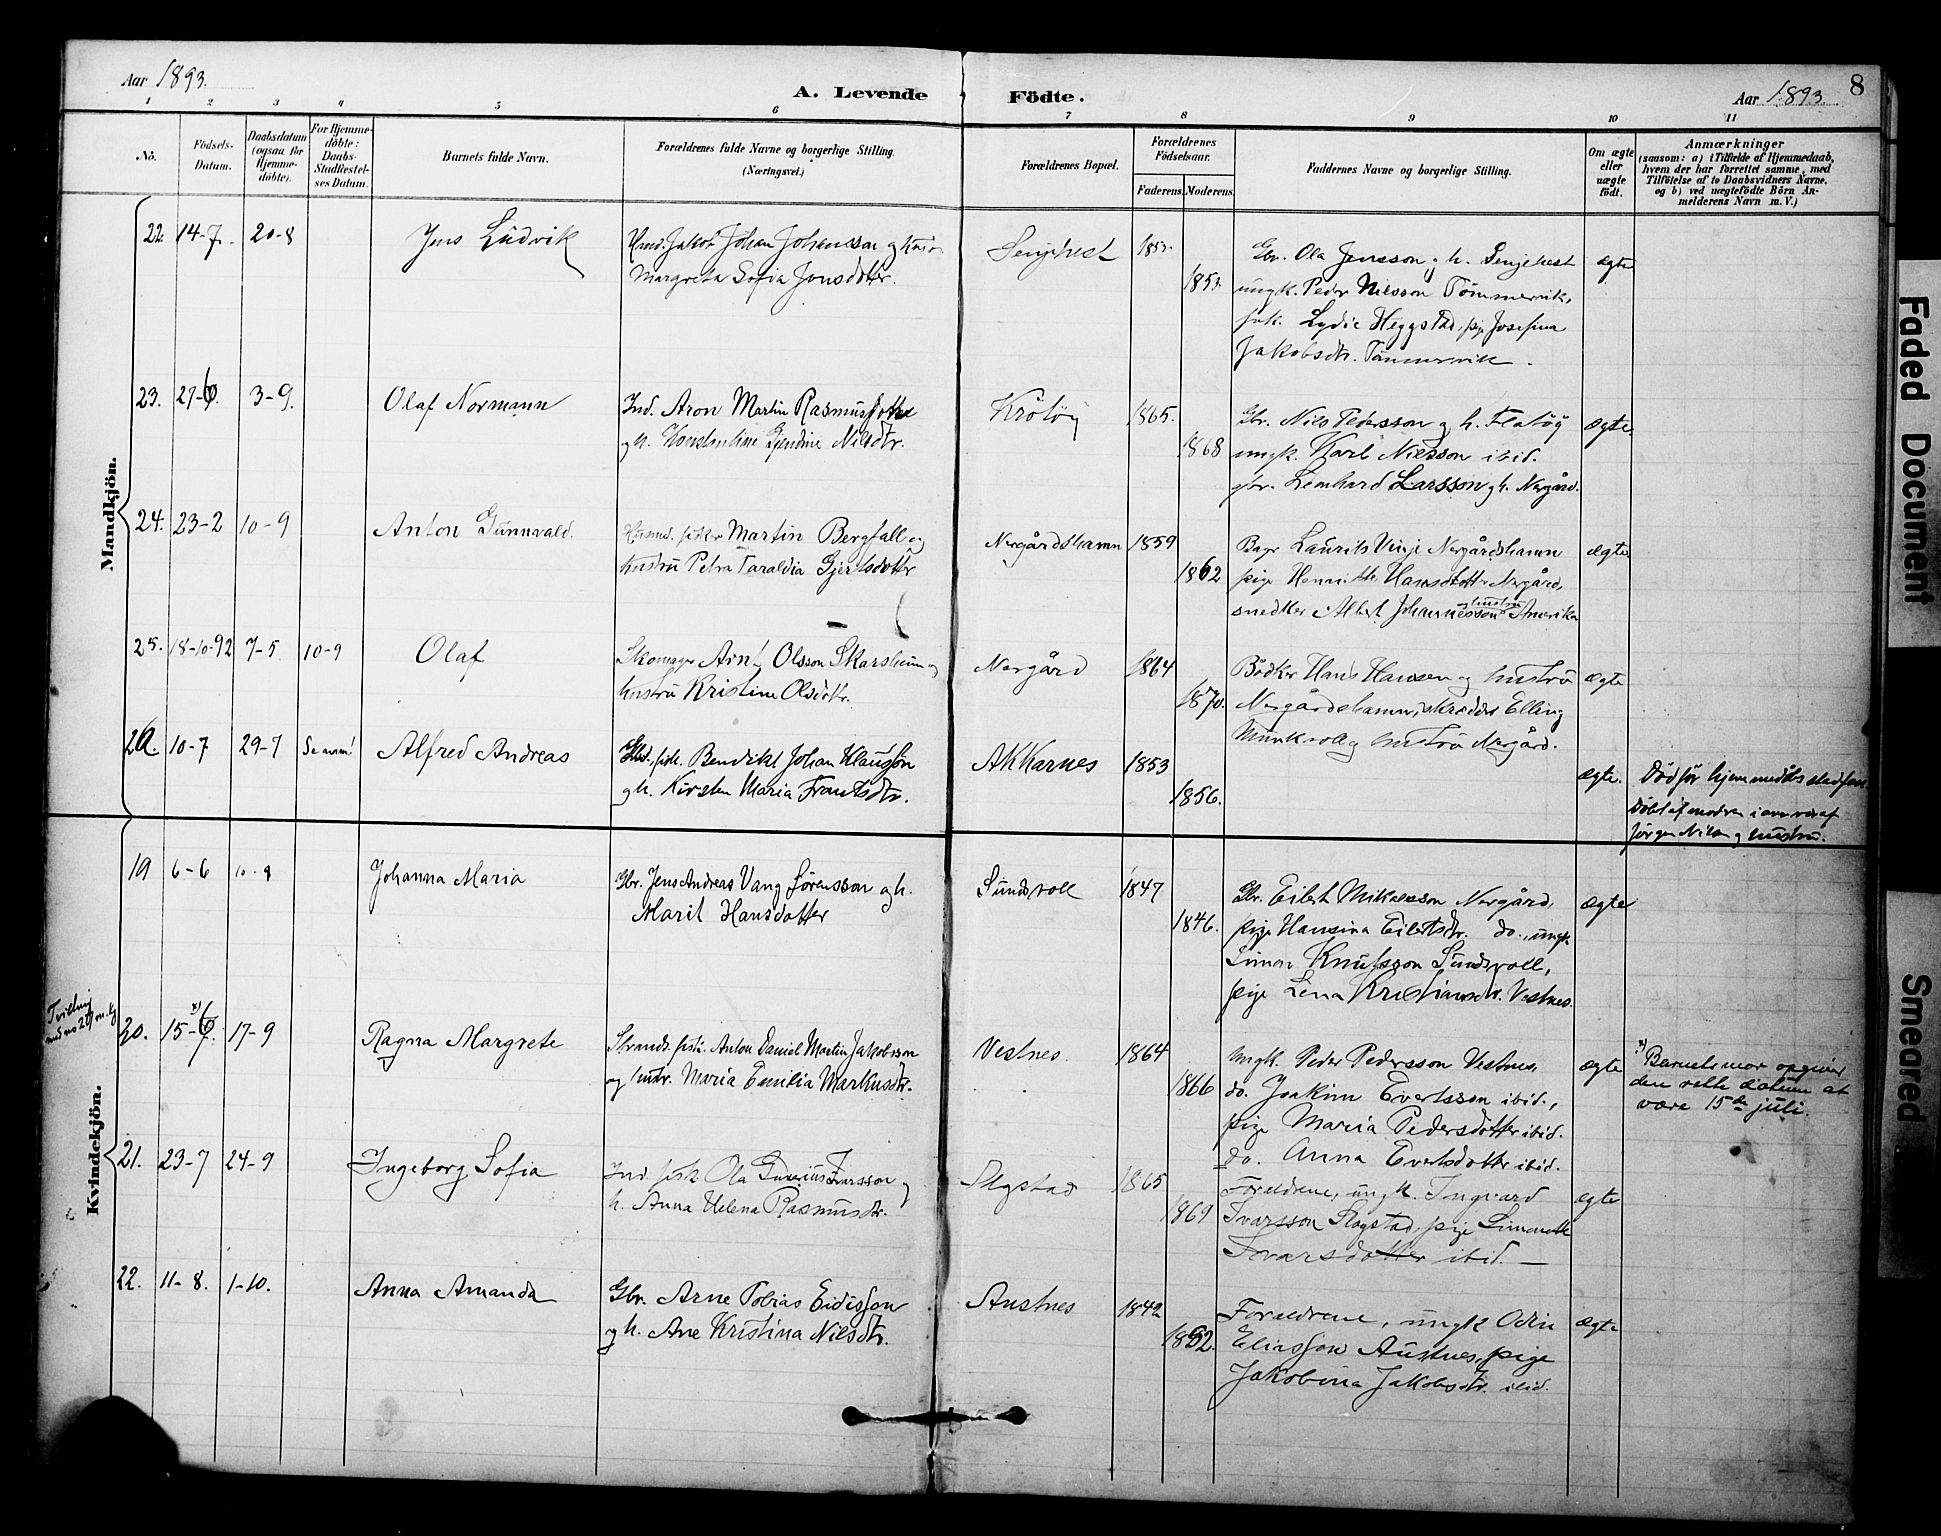 Aar 1893.
A. Levende Födte.
Aar 1893.
8
1 2 3 4 5 6 7 8 9 10 11
No.
Födsels-Datum.
Daabsdatum (ogsaa for Hjemme-döbte).
For Hjemme-döbte: Daabs-Stadfæstel-ses Datum.
Barnets fulde Navn.
Forældrenes fulde Navne og borgerlige Stilling.
(Næringsvei.)
Forældrenes Bopæl.
Forældrenes Födselsaar.
Faderens. Moderens.
Faddernes Navne og borgerlige Stilling.
Om ægte eller uægte födt.
Anmærkninger
(saasom: a) i Tilfælde af Hjemmedaab,
hvem der har forrettet samme, med
Tilföielse af to Daabsvidners Navne,
og b) ved uægtefödte Börn An-
melderens Navn m. V.)
Mandkjön.
22. 14-7. 20-8 Jens Ludvik
Jakob Johan Johansson og
Margreta Sofia Jonsdotter.
Senjehest 1853. 1853.
Gbr. Ola Jensson og h. Senjehest
ungk. Peder Nilsson Tömmervik,
Lydie Heggstad, pige Josefina
Jakobsdtr. Tömmervik.
ægte
23. 27-6. 3-9. Olaf Normann
Ind. Aron Martin
og h. Konstantine Gjendine Nilsdtr.
Kråköy 1865. 1868
Gbr. Nils Pedersson og h. Flatöy
ungk. Karl Nilsson ibid.
gbr. Lenhard Larsson og h. Nergård.
ægte.
24. 23-2 10-9 Anton Gunnvald.
Husmd. fisker Martin Bergfall og
hustru Petra Taraldia Gjertsdotter
Nergårdshamn 1859 1862
Laurits Vinje Nergårdshamn
pige Hansdotter Nergård,
snedker Albert Johannesson og hustru Amerika
ægte
25. 18-10-92 7-5 10-9 Olaf
Skomager Arnt Olsson Skarsheim og
hustru Kristine Olsdotr.
Nergård 1864 1870.
Bödker Hans Hansen og hustru
Nergårdshamn, skredder Elling
Munkvoll og hustru Nergård.
ægte
26. 10-7 29-7 Se anm! Alfred Andreas
fisk. Bendikt Johan Klausson
og h. Kirsten Maria Frantsdtr.
Akkarnes 1853 1856.
ægte.
Död för hjemmedåbs stadfest.
Döbt af modren i overvær af
Jörgen Nilsen og hustru.
Kvindekjön.
19 6-6 Johanna Maria
Gbr. Jens Andreas Vang Sörensson og h.
Marit Hansdotter
Sundsvoll 1847 1846.
Gbr. Eilert Mikalsson Nergård,
pige Hansina Eilertsdtr. do., ungk.
Simon Knutsson Sundsvoll,
pige Lena Kristiansdtr. Vestnes.
ægte
Tvilling
med no 27 m.kj
20. 15-6/7. x) 17-9 Ragna Margrete
Strands. fisk. Anton Daniel Martin Jakobsson
og hustr. Maria Emilia Markusdtr.
Vestnes. 1864 1866
Ungk. Peder Pedersson Vestnes,
do. Joakim Evertsson ibid.,
pige Maria Pedersdotter ibid.
do. Anna Evertsdotter ibid.
ægte
x) Barnets mor opgiver
den rette datum at
være 15de juli.
21. 23-7 24-9 Ingeborg Sofia
Ind. fisk Ola Ivarsson og
h. Anna Helena Rasmusdtr.
Slogstad 1865 1869
Foreldrene, ungk. Ingvard
Ivarsson Slogstad, pige
Ivarsdotter ibid.
ægte
22. 11-8. 1-10. Anna Amanda
Gbr. Arne Tobias Eidisson
og h. Ane Kristina Nilsdtr.
Austnes 1842 1852.
Foreldrene, ungk Odin
Eliasson Austnes, pige
Jakobina Jakobsdtr. ibid.
ægte
Faded Document
Smeared